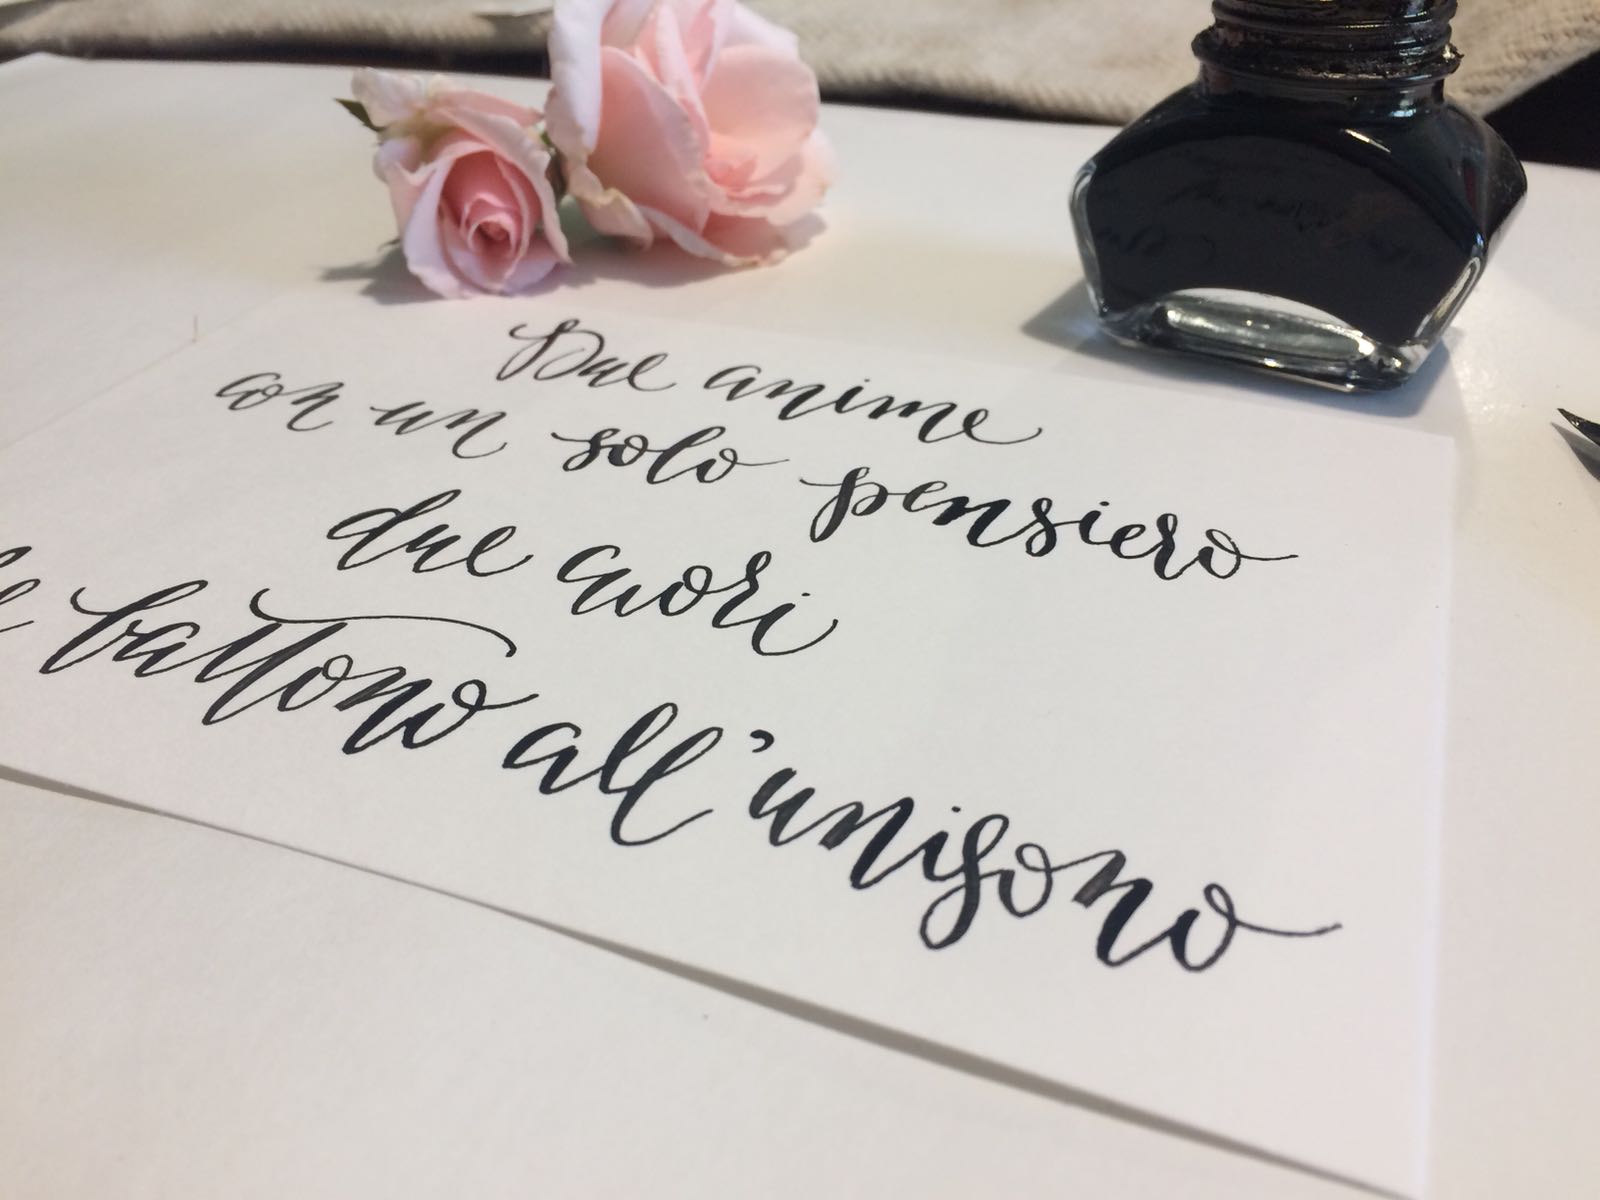 Due anime
con un solo pensiero
due cuori
battono all'unisono